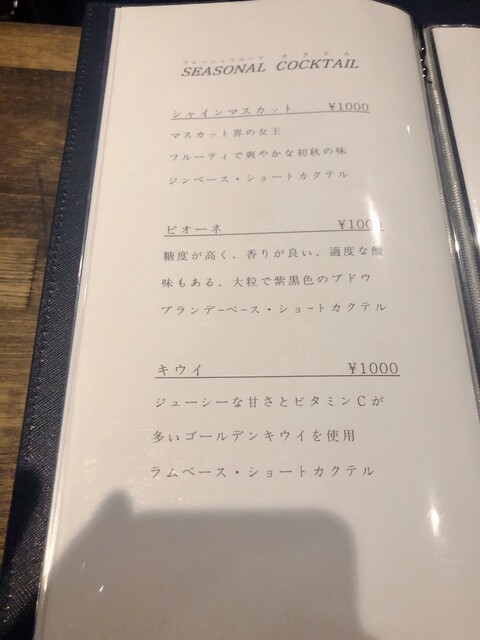 フレッシュフルーツ カクテル
SEASONAL COCKTAIL
シャインマスカット ¥1000
マスカット界の女王
フルーティで爽やかな初秋の味
ジンベース・ショートカクテル
ピオーネ ¥1000
糖度が高く、香りが良い、適度な酸
味もある、大粒で紫黒色のブドウ
ブランデーベース・ショートカクテル
キウイ ¥1000
ジューシーな甘さとビタミンCが
多いゴールデンキウイを使用
ラムベース・ショートカクテル